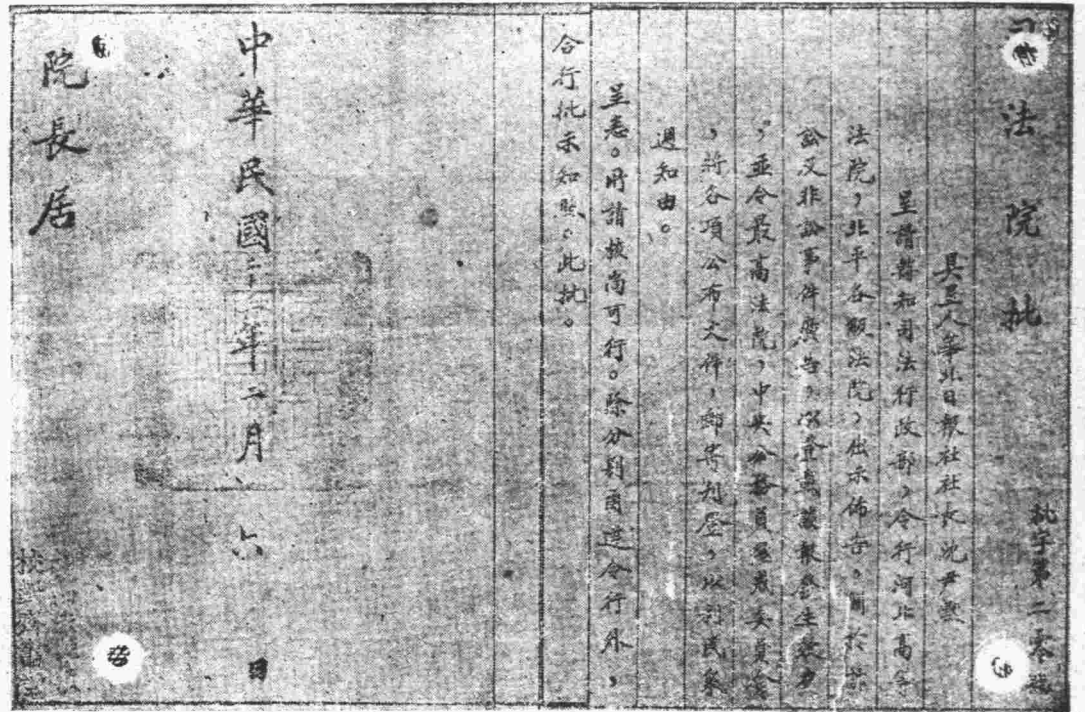 司法院批
批字第二零號
具呈人華北日報社社長沈尹默
呈請轉知司法行政部，令行河北高等
法院，北平各級法院，出示佈告，關於訴
訟及非訟事件廣告，須登載該報發生效力
，並令最高法院，中央公務員懲戒委員會
，將各項公布文件，郵寄刊登，以利民眾
週知由。
呈悉。所請核尚可行。除分別函達令行外，
合行批示知照。此批。
中華民國二十二年二月六日
院長居